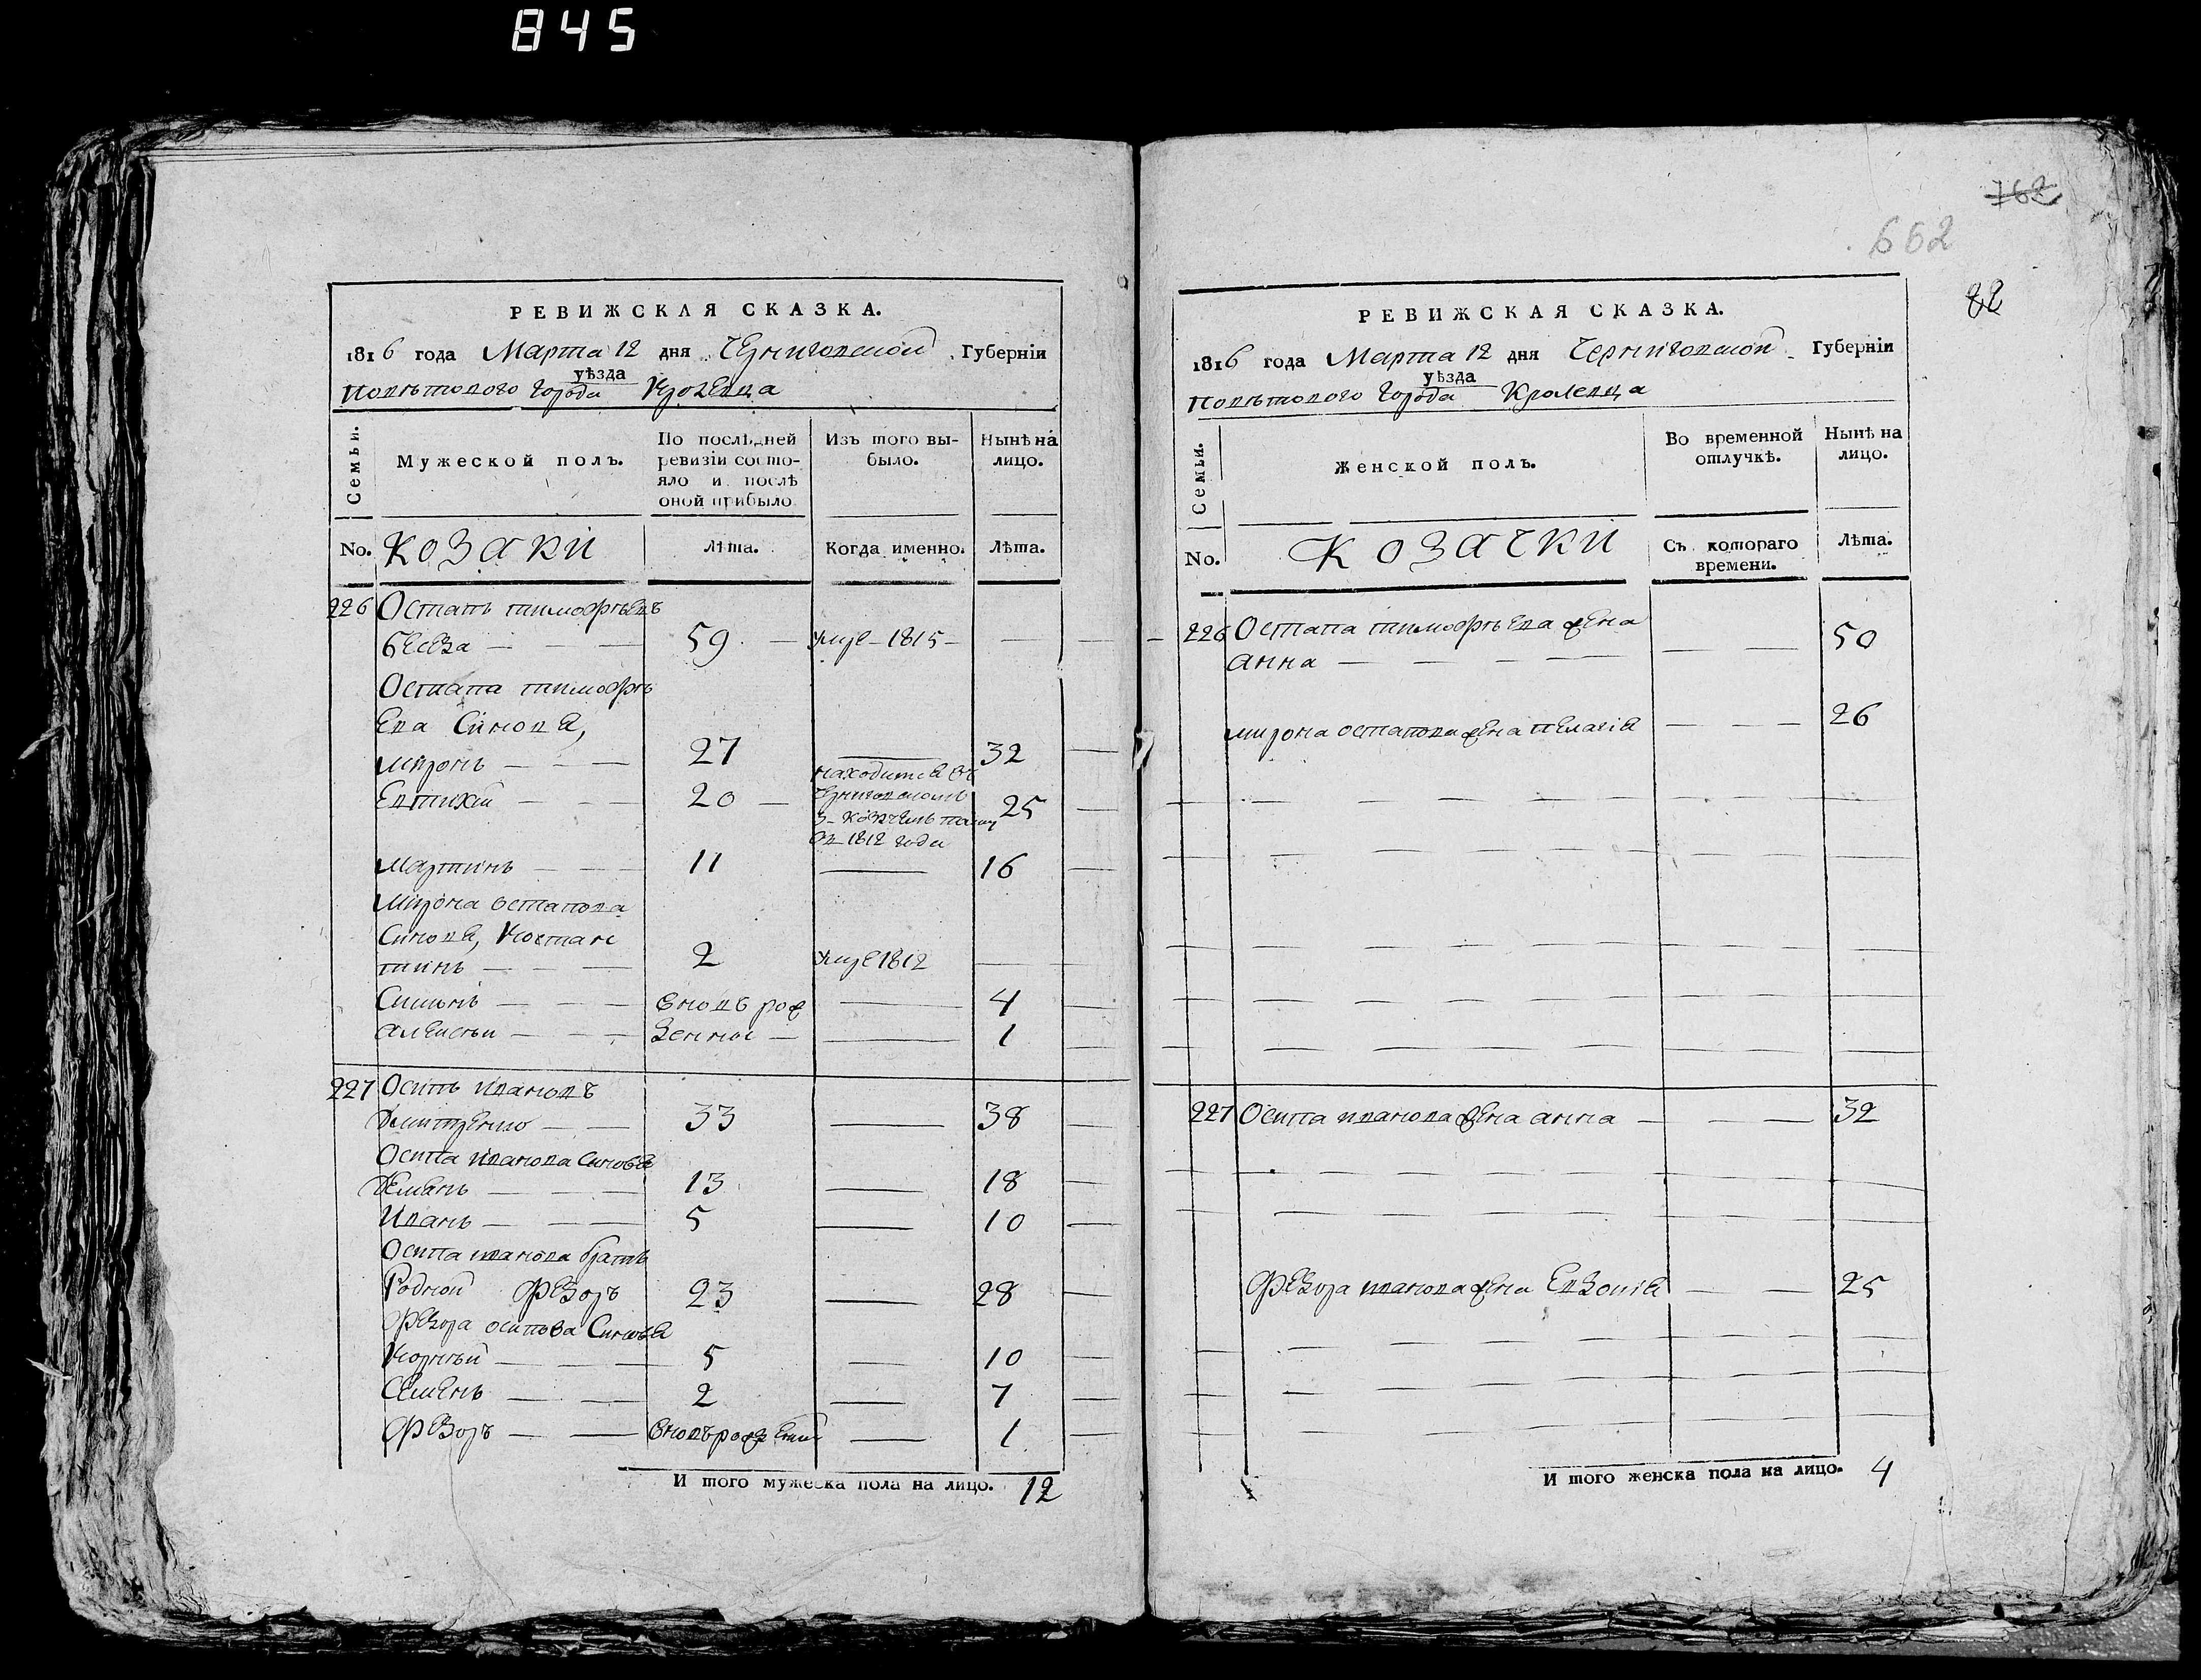 845
762
662
82
РЕВИЖСКАЯ СКАЗКА.
1816 года Марта 12 дня Черниговской Губерніи
уѣзда
Повѣтового города Кролевца
Семьи.
Мужеской полъ.
По послѣдней ревизіи состо-
яло и послѣ
оной прибыло.
Изъ того вы-
было.
Нынѣ на
лицо.
No. Козаки
Лѣта.
Когда именно.
Лѣта.
226 Остапъ тимофѣевъ
бесѣда — 59 — умре 1815 —
Остапа тимофѣ
ева Синовя,
миронъ — 27 — 32
Евтихій — 20 — находится въ 25
Черниговскомъ
въ 1812 году
мартинъ — 11 — 16
Мирона остапова
Синовя, Костан
тинъ — 2 умре 1812
Симонъ — вновь рож — 4
алексѣй — денные — 1
227 Осипъ ивановъ
Дмитренко — 33 — 38
Осипа иванова Синовя
Демянъ — 13 — 18
Иванъ — 5 — 10
Осипа иванова братъ
Родной Федоръ 23 — 28
Федора осипова Синовя
Корнѣй — 5 — 10
Семенъ — 2 — 7
Федоръ — вновърожденій — 1
И того мужеска пола на лицо. 12
РЕВИЖСКАЯ СКАЗКА.
1816 года Марта 12 дня Черниговской Губерніи
уѣзда
Повѣтового города Кролевца
Семьи.
Женской полъ.
Во временной
отлучкѣ.
Нынѣ на
лицо.
No. Козачки
Съ котораго
времени.
Лѣта.
226 Остапа тимофѣева жена
анна — 50
мирона остапова жена пелагія — 26
227 Осипа иванова жена анна — 32
Федора иванова жена Евдокія — 25
И того женска пола на лицо. 4